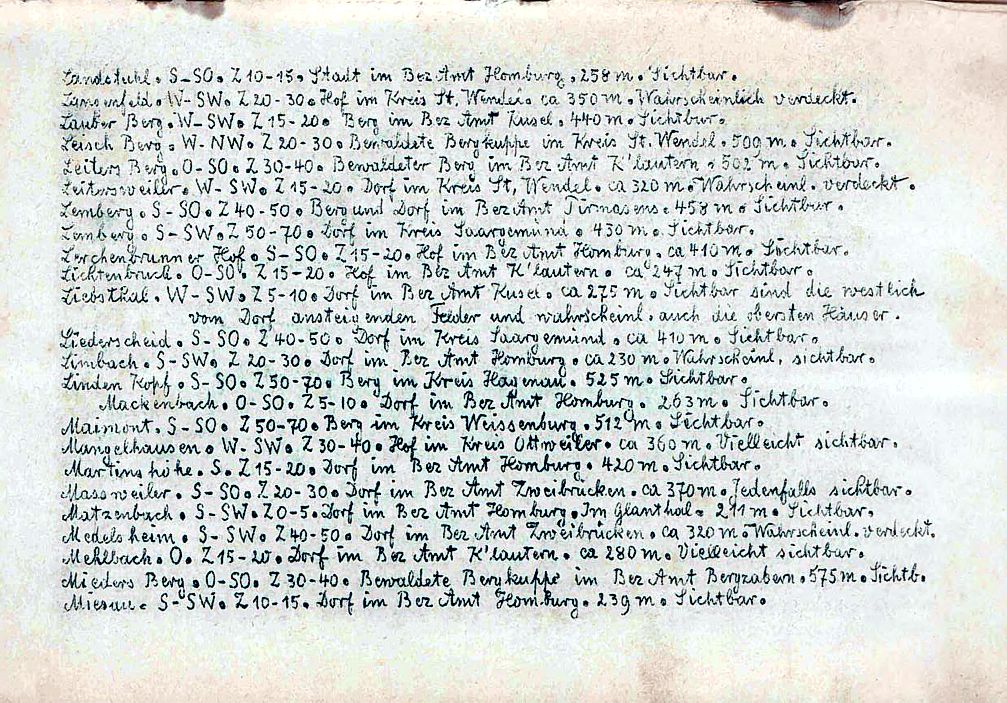 Landstuhl. S-SO. Z 10-15. Stadt im Bez Amt Homburg. 258 m. Sichtbar.
Langenfeld. W-SW. Z 20-30. Hof im Kreis St. Wendel. ca 350 m. Wahrscheinlich verdeckt.
Lauber Berg. W-SW. Z 15-20. Berg im Bez Amt Kusel. 440 m. Sichtbar.
Leisch Berg. W-NW. Z 20-30. Bewaldete Bergkuppe im Kreis St. Wendel. 500 m. Sichtbar.
Leiters Berg. O-SO. Z 30-40. Bewaldeter Berg im Bez Amt K'lautern. 502 m. Sichtbar.
Leitersweiler. W-SW. Z 15-20. Dorf im Kreis St, Wendel. ca 320 m. Wahrscheinl. verdeckt.
Lemberg. S-SO. Z 40-50. Berg und Dorf im Bez Amt Pirmasens. 458 m. Sichtbar.
Lemberg. S-SW. Z 50-70. Dorf im Kreis Saargemünd. 430 m. Sichtbar.
Lerchenbrunner Hof. S-SO. Z 15-20. Hof im Bez Amt Homburg. ca 410 m. Sichtbar.
Lichtenbruck. O-SO. Z 15-20. Hof im Bez Amt K'lautern. ca 247 m. Sichtbar.
Liebsthal. W-SW. Z 5-10. Dorf im Bez Amt Kusel. ca 275 m. Sichtbar sind die westlich
vom Dorf ansteigenden Felder und wahrscheinl. auch die obersten Häuser.
Liederscheid. S-SO. Z 40-50. Dorf im Kreis Saargemünd. ca 410 m. Sichtbar.
Limbach. S-SW. Z 20-30. Dorf im Bez Amt Homburg. ca 230 m. Wahrscheinl. sichtbar.
Linden Kopf. S-SO. Z 50-70. Berg im Kreis Hagenau. 525 m. Sichtbar.
Mackenbach. O-SO. Z 5-10. Dorf im Bez Amt Homburg. 263 m. Sichtbar.
Maimont. S-SO. Z 50-70. Berg im Kreis Weissenburg. 512 m. Sichtbar.
Mangelhausen. W-SW. Z 30-40. Hof im Kreis Ottweiler. ca 360 m. Vielleicht sichtbar.
Martinshöhe. S. Z 15-20. Dorf im Bez Amt Homburg. 420 m. Sichtbar.
Massweiler. S-SO. Z 20-30. Dorf im Bez Amt Zweibrücken. ca 370 m. Jedenfalls sichtbar.
Matzenbach. S-SW. Z 0-5. Dorf im Bez Amt Homburg. Im Glanthal. 211 m. Sichtbar.
Medelsheim. S-SW. Z 40-50. Dorf im Bez Amt Zweibrücken. ca 320 m. Wahrscheinl. verdeckt.
Mehlbach. O. Z 15-20. Dorf im Bez Amt K'lautern. ca 280 m. Vielleicht sichtbar.
Mieders Berg. O-SO. Z 30-40. Bewaldete Bergkuppe im Bez Amt Bergzabern. 575 m. Sichtb.
Miesau. S-SW. Z 10-15. Dorf im Bez Amt Homburg. 239 m. Sichtbar.